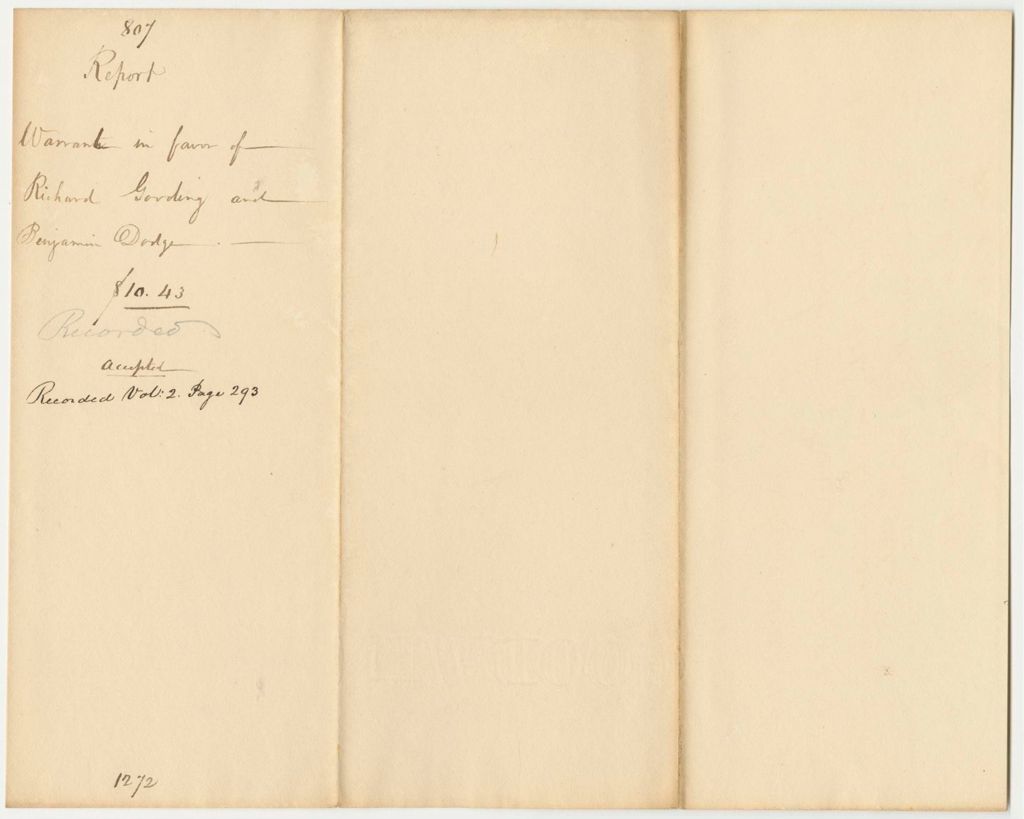 807
Report
Warrant in favor of
Richard Gooding and
Benjamin Dodge.
$10.43
Recorded
Accepted
Recorded Vol: 2. Page 293
1272